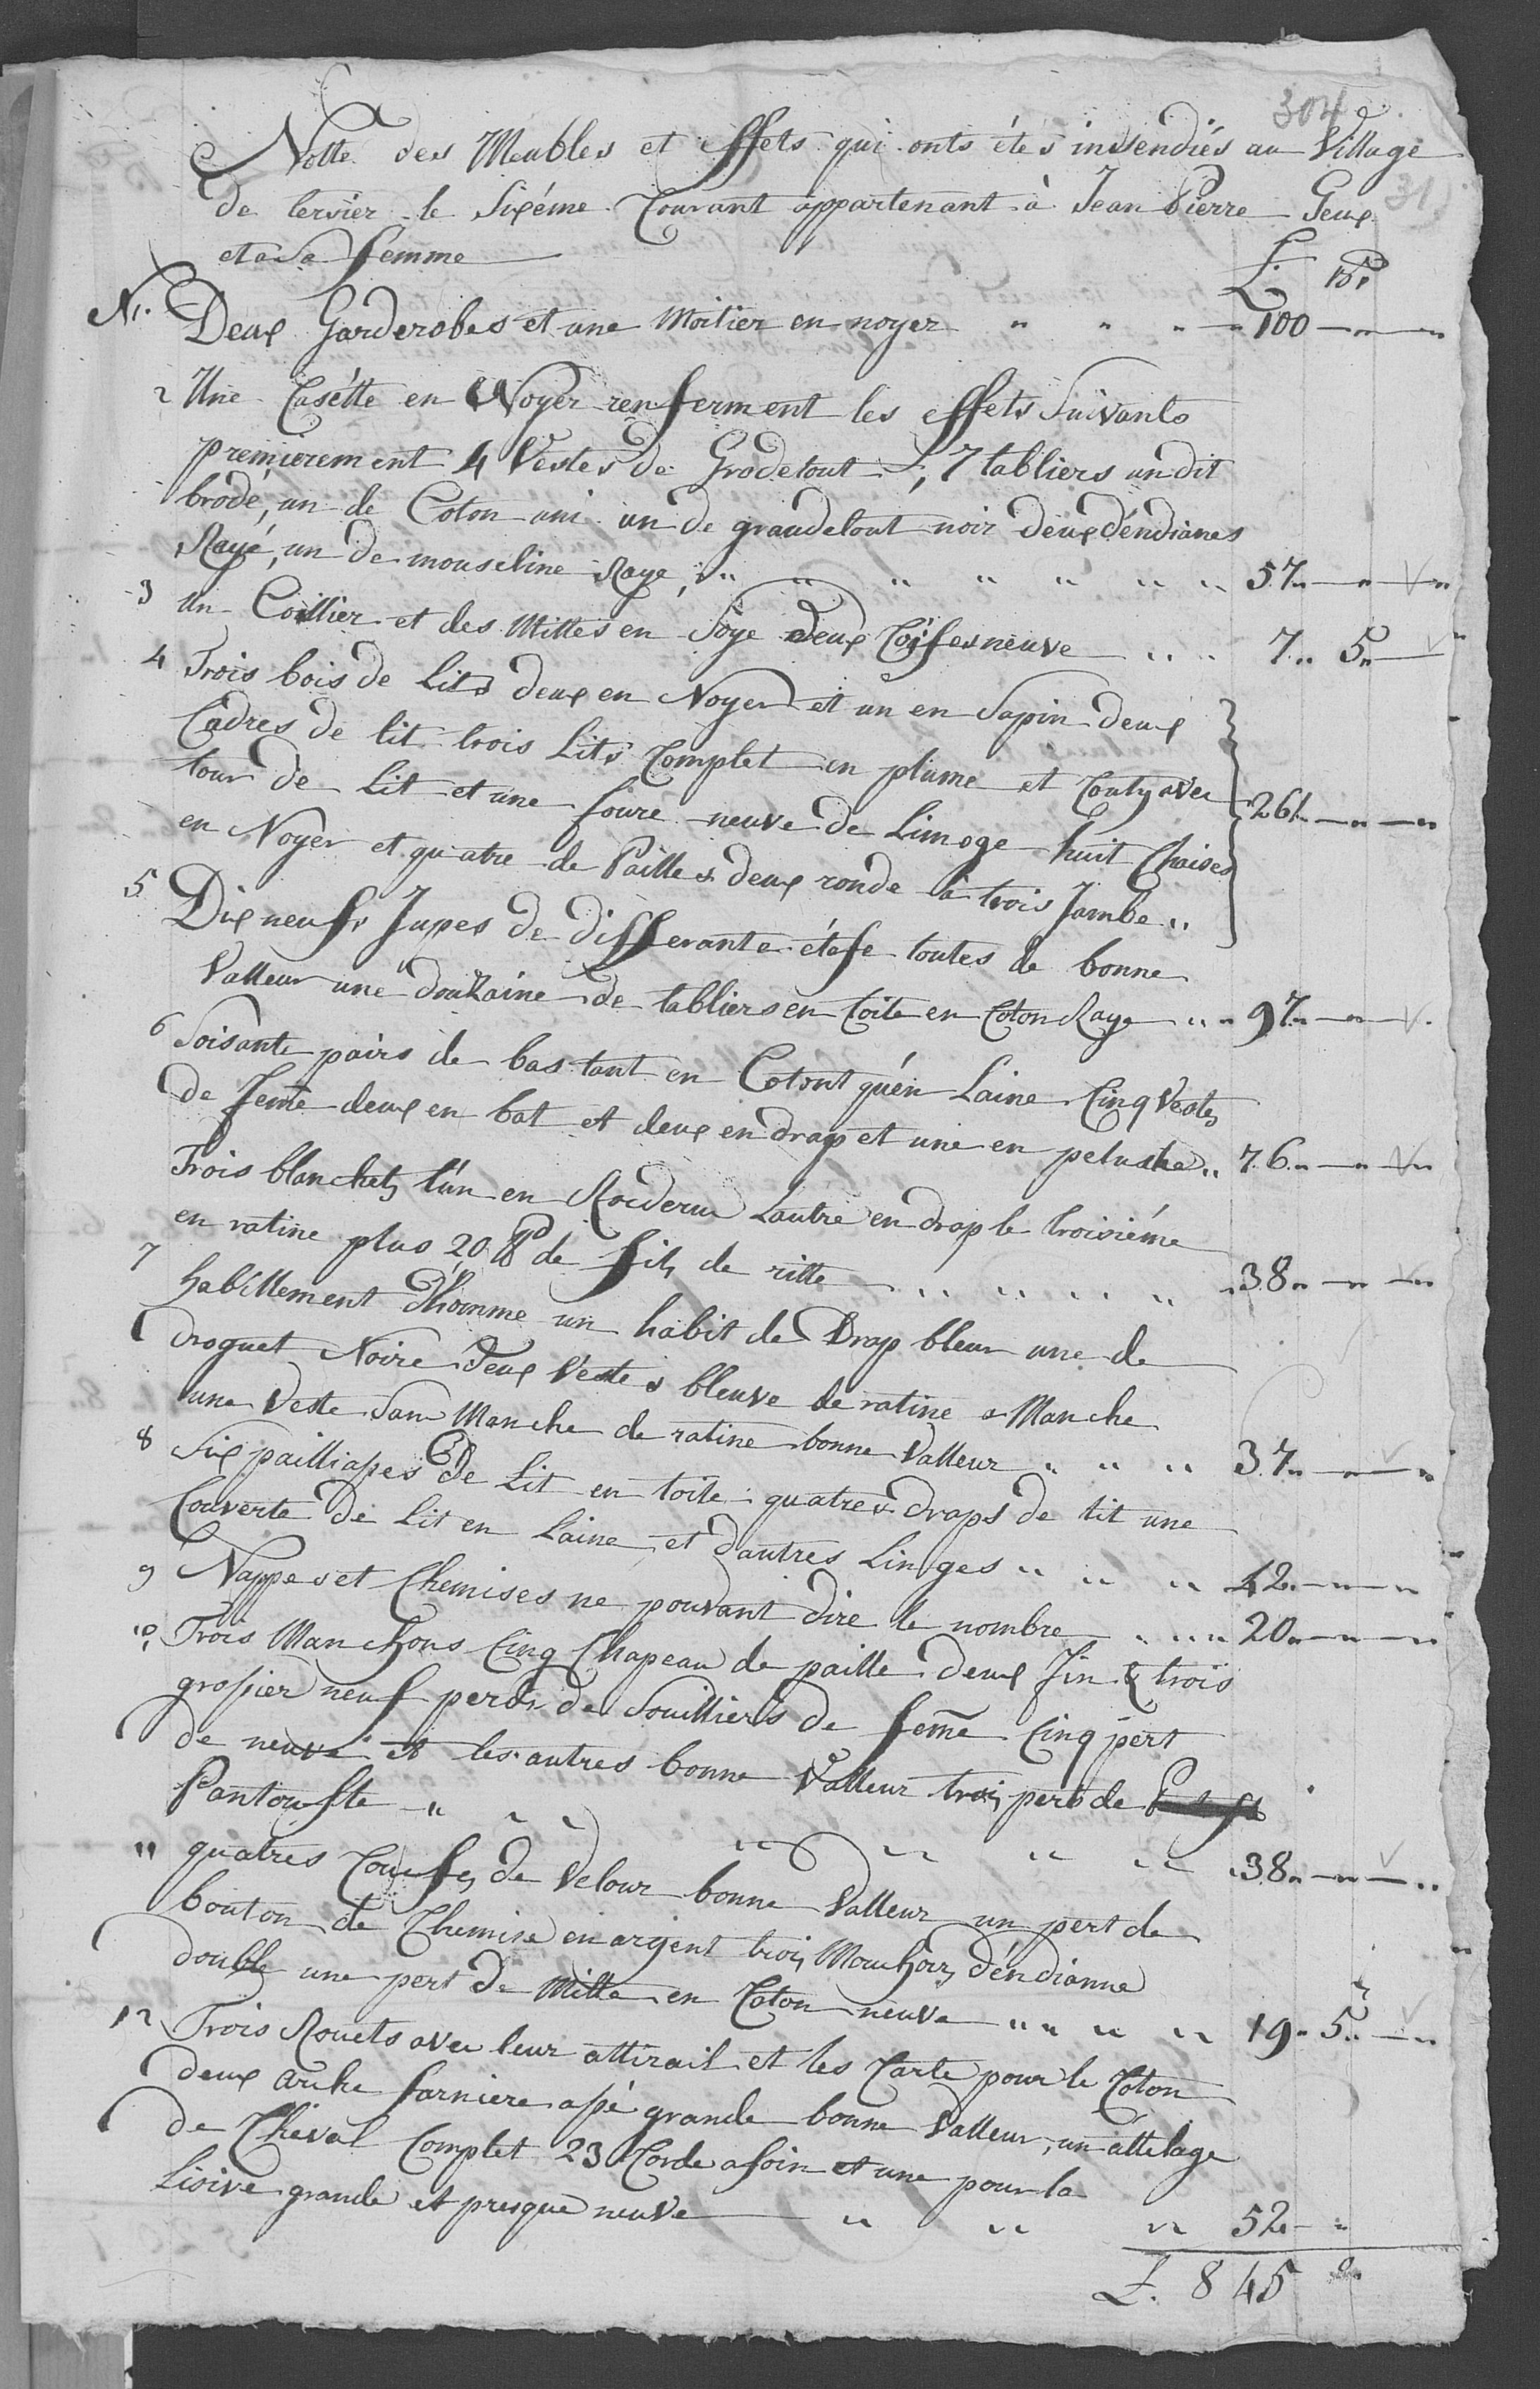 304
31
Notte des Meubles et effets qui onts étés insendiés au Village
de Cervier le Sixéme Courant appartenant à Jean Pierre Geux
et a Sa femme
L. bz
N 1. Deux Garderobes et une Moitier en noyer " " " " 100 — " — "
2 Une Casétte en Noyer renferment les effets Suivants
premierement 4 Vestes de Grodetout, 7 tabliers un dit
brodé, un de Coton uni un de graudetout noir deux d'éndianes
Rayé, un de mouseline Raye, " " " " " " " 57 " — " — "
3 Un Collier et des Mittes en Soye deux Coifes neuve " " 7 " 5 " — "
4 Trois bois de Lits deux en Noyer et un en Sapin deux
Cadres de lit trois Lits Complet en plume et Couty avec
tour de Lit et une foure neuve de Limoge huit Chaises 261 " — " — "
en Noyer et quatre de Pailles deux ronde à trois Jambe "
5 Dix neufs Jupes de differante étofe toutes de bonne
Valleur une douzaine de tabliers en toite en Coton Raye " " 97 " — " —
6 Soisante pairs de bas tant en Cotont qu'én Laine Cinq Vestes
de feme deux en bat et deux en drap et une en peluche " 76 " — " — "
Trois blanchets l'un en Lautre en drap le troisiéme
en ratine plus 20 ℔ de fils de ritte " " " " 38 " — " — "
7 habillement d'homme un habit de Drap bleur une de
droguet Noire deux Vestes bleuve de ratine a Manche
une Veste San Manche de ratine bonne Valleur " " " 37 " — " — "
8 Six pailliases de Lit en toite quatres draps de lit une
Couverte de Lit en Laine et dautres Linges " " " 42 " — " — "
9 Nappes et Chemises ne pouvant dire le nombre " " " 20 " — " — "
10 Trois Manchons Cinq Chapeau de paille deux fin & trois
grosier neuf perds de Soulliers de feme Cinq pert
de neuve et les autres bonne Valleur trois perts de
Pantoufle " " " " " " " 38 " — " — "
11 quatres Couefes de Velour bonne Valleur un pert de
bouton de Chemise en argent trois Mouchoirs d'éndianne
double une pert de Mitte en Coton neuve " " " " 19 " 5 " — "
12 Trois Rouets avec leur attirail et les Carte pour le Coton
deux arche farniere asé grande bonne Valleur, un attelage
de Cheval Complet 23 Corde a foin et une pour la
Lisive grande et presque neuve " " " 52 — "
L. 845 "